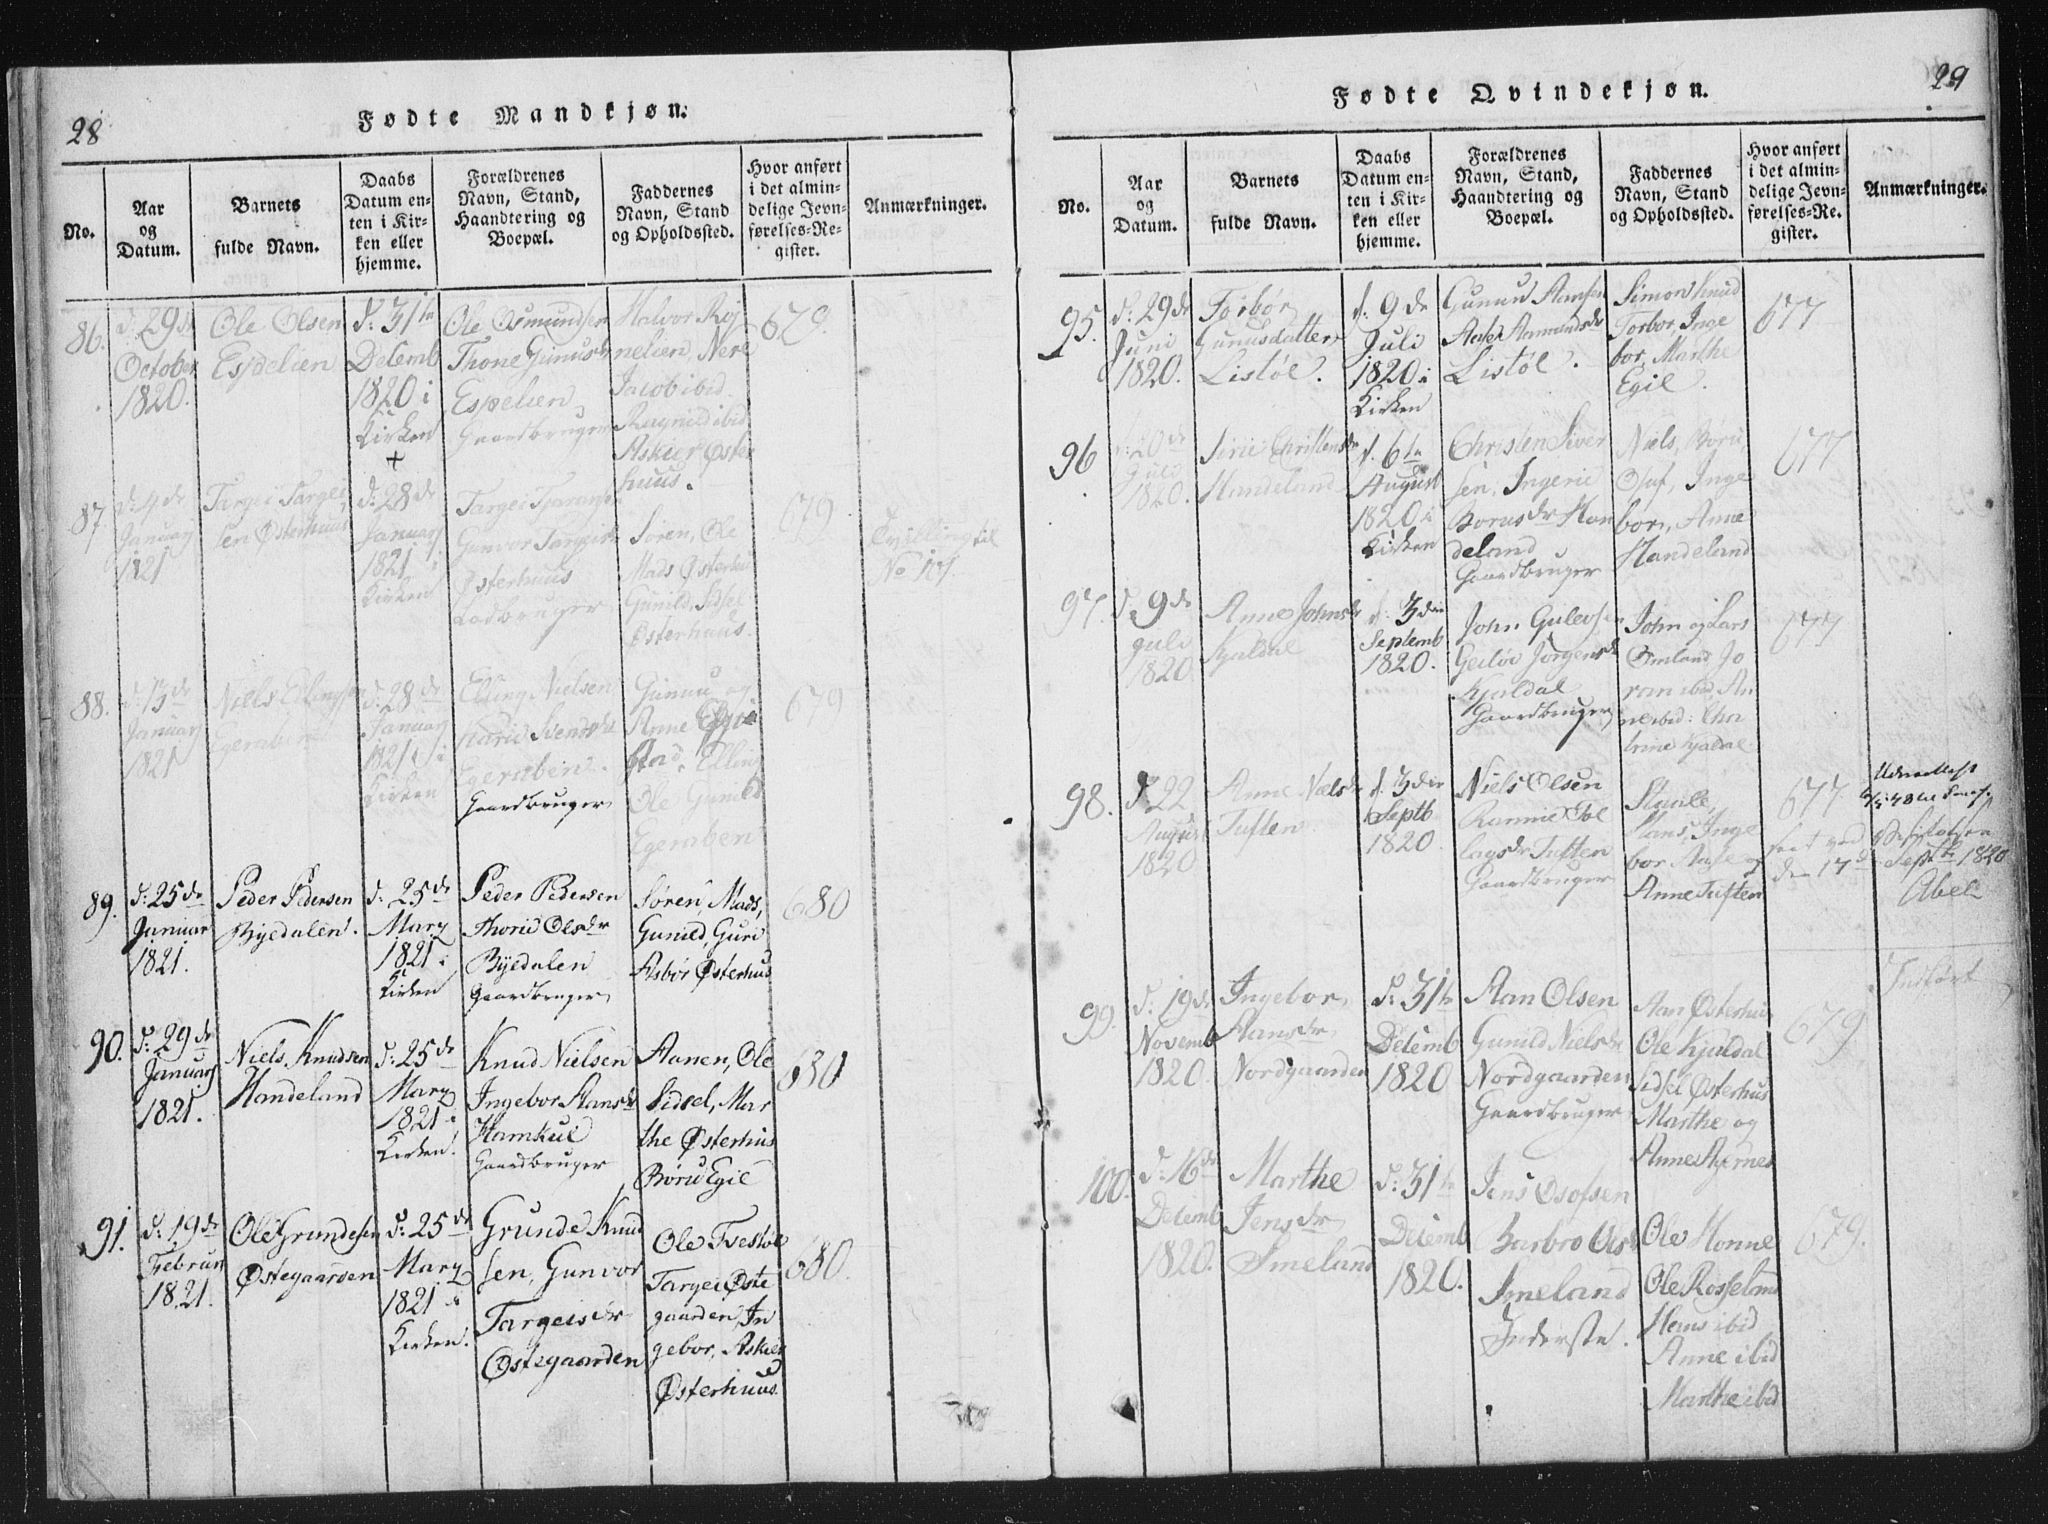 28
Fødte Mandkjøn.
No.
Aar
og
Datum.
Barnets
fulde Navn.
Daabs
Datum en-
ten i Kir-
ken eller
hjemme.
Forældrenes
Navn, Stand,
Haandtering og
Boepæl.
Faddernes
Navn, Stand
og Opholdssted.
Hvor anført
i det almin-
delige Jevn-
førelses-Re-
gister.
Anmærkninger.
86.
d: 29de
October
1820.
Ole Olsen
Espelien
d: 31te
Decemb
1820 i
Kirken
+
Ole Osmundsen
Thone
Espelien
Gaardbruger
Halvor Røj
nelien, Nere
Jacob ibid
Ragnild ibid
Askier Øster
huus.
679.
87.
d: 4de
Januarj
1821
Targei Targei
sen Østerhuus
d: 28de
Januarj
1821 i
Kirken
Targei
Gunvor Targeisdr
Østerhuus
Søren, Ole
Mads Østerhu
Gunild, Sidsel
Østerhuus.
679.
Tvilling til
No
88.
d: 13de
Januarj
1821
Niels Ellingsen
Egeraben
d: 28de
Januarj
1821 i
Kirken
Elling Nielsen
Karie Svensdr
Egeraben.
Gaardbruger
Gunnu og
Anne
stad, Elling
Ole Gunild
Egeraben
679
89.
d: 25de
Januar
1821.
Peder Pedersen
Byedalen.
d: 25de
Marz
1821 i
Kirken
Peder Pedersen
Thorie Olsdr
Byedalen
Gaardbruger
Søren, Mads,
Gunild, Guri
Asbør Østerhus
680
90.
d: 29de
Januarj
1821.
Niels Knudsen
Handeland
d: 25de
Marz
1821 i
Kirken.
Knud Nielsen
Ingebor Hansdr
Hamkul
Gaardbruger
Aanen, Ole
Sidsel, Mar
the Østerhus
Børu Egil
680
91.
d: 19de
Februar
1821.
Ole Grundesen
Østegaarden
d: 25de
Marz
1821 i
Kirken.
Grunde Knud
sen, Gunvor
Targeisdr
Østegaarden
Ole Tvestøl
Targei Øste
gaarden, In
gebor, Askier
Østerhuus.
680.
29
Fødte Qvindekjøn.
No.
Aar
og
Datum.
Barnets
fulde Navn.
Daabs
Datum en-
ten i Kir-
ken eller
hjemme.
Forældrenes
Navn, Stand,
Haandtering og
Boepæl.
Faddernes
Navn, Stand
og Opholdssted.
Hvor anført
i det almin-
delige Jevn-
førelses-Re-
gister.
Anmærkninger.
95.
d: 29de
Juni
1820.
Torbør
Gunusdatter
Listøl.
d: 9de
Juli
1820 i
Kirken
Gunnu Aamsen
Aase Aamundsdr
Listøl.
Simon Knud
Torbor, Inge
bor, Marthe
Egil.
677
96
d: 20de
Juli
1820.
Sirie Christensdr
Handeland
d. 6te
August
1820 i
Kirken
Christen Siver
sen, Ingerie
Borusdr Han
deland
Gaardbruger
Niels, Børu
Oluf, Inge
bør, Anne
Handeland
677
97.
d. 9de
Juli
1820
Anne Johnsdr
Kjaldal
d. 3die
Septemb
1820.
John Gulevsen
Geiløe Jørgensdr
Kjaldal
Gaardbruger
John og Lars
Omland Jo
ran ibid, An
ne ibid: Cha
trine Kjaldal
677
98.
d 22
August
1820
Anne Nielsdr
Tuften
d. 3die
Septb
1820
Niels Olsen
Rannie Tol
lagsdr Tuften
Gaardbruger
Staale,
Hans, Inge
bor Aase og
Anne Tuften
677
den 17de Septb 1820
Abel
99.
d: 19de
Novemb
1820.
Ingebor
Aansdr
Nordgaarden
d: 31te
Decemb
1820
Aan Olsen
Gunild Nielsdr
Nordgaarden
Gaardbruger
Aan Østerhus
Ole Kjaldal
Sidsel Østerhus
Marthe og
Anne
679.
Indført
100.
d: 16de
Decemb
1820.
Marthe
Jensdr
Imeland
d: 31te
Decemb
1820.
Jens Osofsen
Barbro Olsdr
Imeland
Inderste.
Ole Honne
Ole Rosseland
Hans ibid
Anne ibid
Marthe ibid
679.